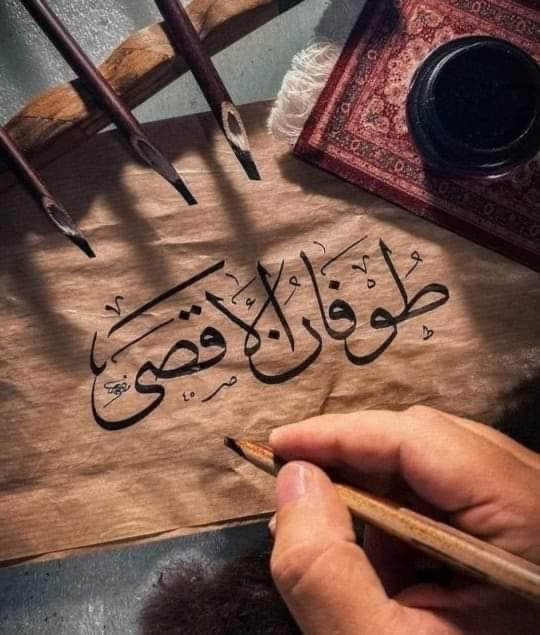 طُوْفَانُ الْأَقْصَى